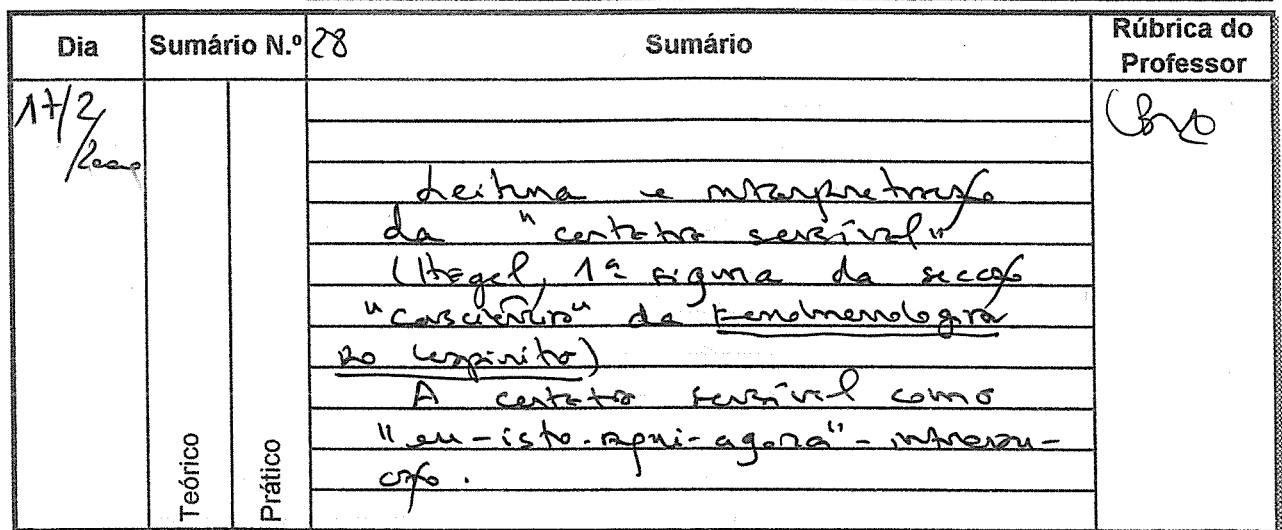 Dia Sumário N.º 28 Sumário Rúbrica do Professor
17/2/2000
Leitura e interpretação
da "certeza sensível"
(Hegel, 1ª figura da secção
"consciência" da Fenomenologia
do espírito)
A certeza sensível como
"eu-isto-aqui-agora" - introdu-
ção.
Teórico
Prático